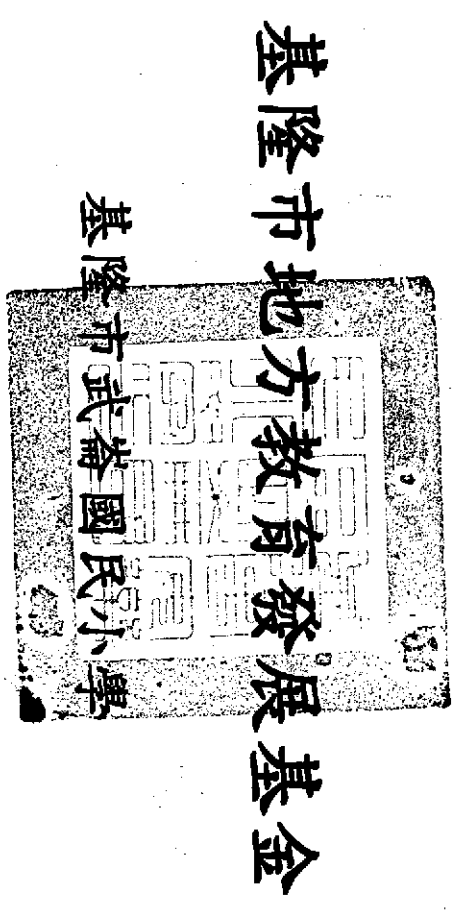 基隆市地方教育發展基金
基隆市武崙國民小學